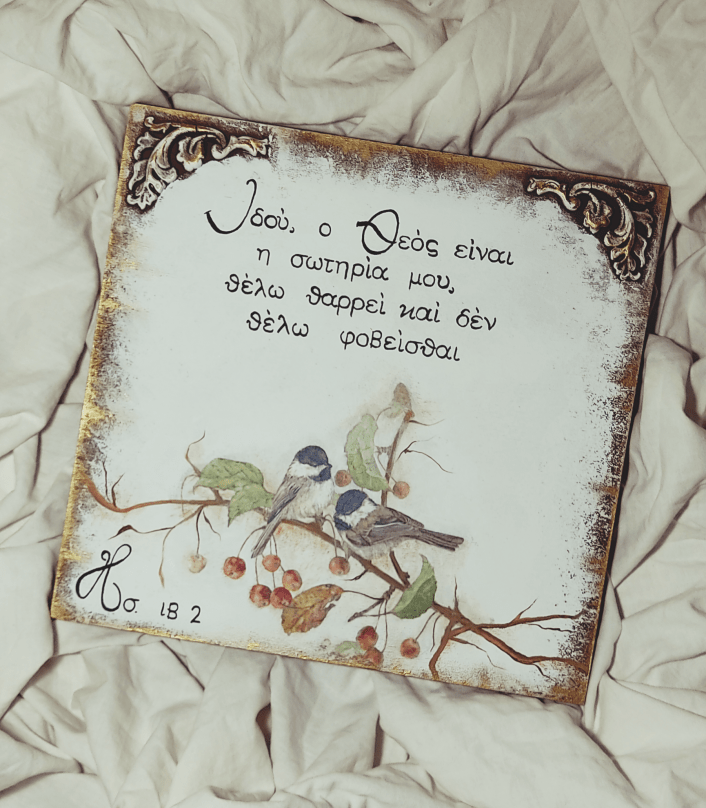 Ιδού, ο Θεὸς εἶναι
η σωτηρία μου,
θὲλω θαρρεὶ καὶ δὲν
θὲλω φοβεὶσθαι
Ησ. ιβ 2